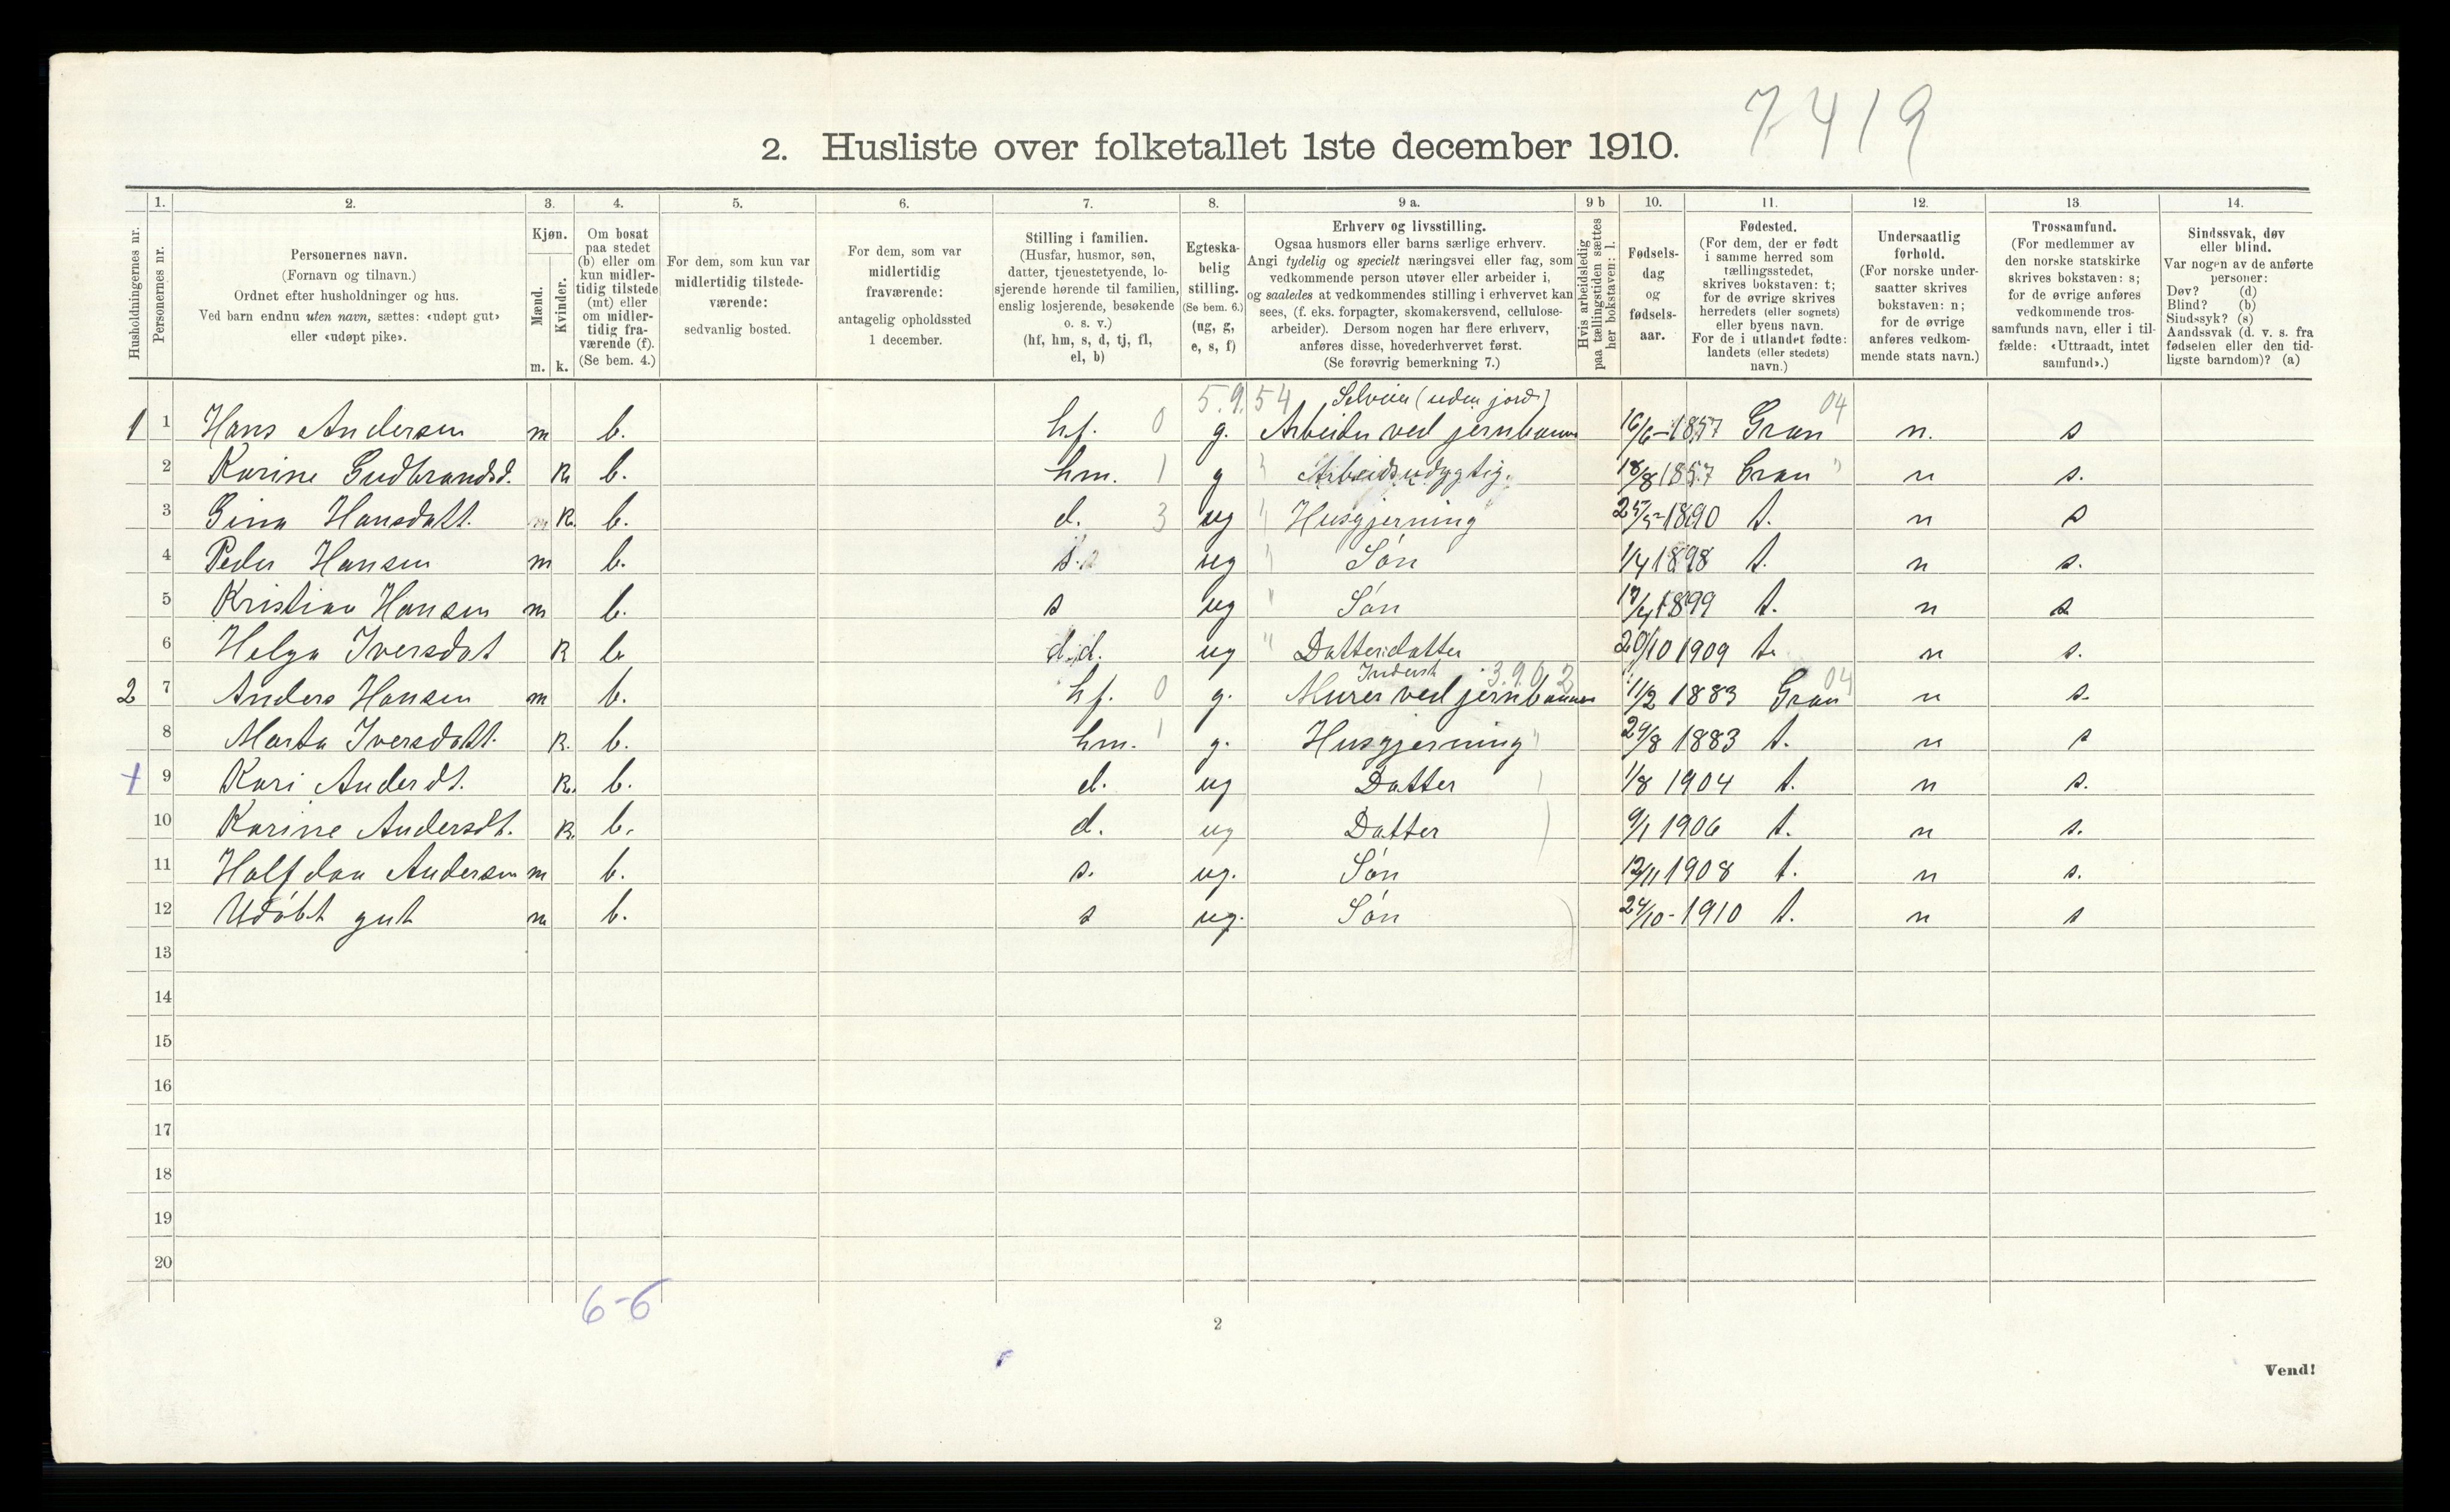 7419
2. Husliste over folketallet 1ste december 1910.
1. 2. 3. 4. 5. 6. 7. 8. 9 a. 9 b 10. 11. 12. 13 14.
Husholdningernes nr.
Personernes nr.
Personernes navn.
(Fornavn og tilnavn.)
Ordnet efter husholdninger og hus.
Ved barn endnu uten navn, sættes: «udøpt gut»
eller «udøpt pike».
Kjøn.
Mænd.
Kvinder.
m. k.
Om bosat
paa stedet
(b) eller om
kun midler-
tidig tilstede
(mt) eller
om midler-
tidig fra-
værende (f).
(Se bem. 4.)
For dem, som kun var
midlertidig tilstede-
værende:
sedvanlig bosted.
For dem, som var
midlertidig
fraværende:
antagelig opholdssted
1 december.
Stilling i familien.
(Husfar, husmor, søn,
datter, tjenestetyende, lo-
sjerende hørende til familien,
enslig losjerende, besøkende
o. s. v.)
(hf, hm, s, d, tj, fl,
el, b)
Egteska-
belig
stilling.
(Se bem. 6.)
(ug, g,
e, s, f)
Erhverv og livsstilling.
Ogsaa husmors eller barns særlige erhverv.
Angi tydelig og specielt næringsvei eller fag, som
vedkommende person utøver eller arbeider i,
og saaledes at vedkommendes stilling i erhvervet kan
sees, (f. eks. forpagter, skomakersvend, cellulose-
arbeider). Dersom nogen har flere erhverv,
anføres disse, hovederhvervet først.
(Se forøvrig bemerkning 7.)
Hvis arbeidsledig
paa tællingstiden sættes
her bokstaven: l.
Fødsels-
dag
og
fødsels-
aar.
Fødested.
(For dem, der er født
i samme herred som
tællingsstedet,
skrives bokstaven: t;
for de øvrige skrives
herredets (eller sognets)
eller byens navn.
For de i utlandet fødte:
landets (eller stedets)
navn.)
Undersaatlig
forhold.
(For norske under-
saatter skrives
bokstaven: n;
for de øvrige
anføres vedkom-
mende stats navn.)
Trossamfund.
(For medlemmer av
den norske statskirke
skrives bokstaven: s;
for de øvrige anføres
vedkommende tros-
samfunds navn, eller i til-
fælde: «Uttraadt, intet
samfund».)
Sindssvak, døv
eller blind.
Var nogen av de anførte
personer:
Døv? (d)
Blind? (b)
Sindssyk? (s)
Aandssvak (d. v. s. fra
fødselen eller den tid-
ligste barndom)? (a)
5.9.54 Selveier (uden jord) 04
1 1 Hans Andersen m b. hf. 0 g. Arbeider ved jernbanen 16/6-1857 Gran n. s
2 Karine Gudbrandsd. k b. hm. 1 g " Arbeidsudygtig. 18/8 1857 Gran " n s.
3 Gina Hansdatt. k. b. d. 3 ug " Husgjerning 25/5-1890 t. n s
4 Peder Hansen m b. s. ug " Søn 1/4 1898 t. n s.
5 Kristian Hansen m b. s ug " Søn 1899 t. n s.
6 Helga Iversdat k b d.d. ug " Datterdatter 20/10 1909 t. n s.
Inderst 3.9.0 2 04
2 7 Anders Hansen m b. hf. 0 g. Murer ved jernbanen 11/2 1883 Gran n s.
8 Marta Iversdatt. k. b. hm. 1 g. Husgjerning " 29/8 1883 t. n s
+ 9 Kari Anderdt. k. b. d. ug Datter 1/8 1904 t. n s.
10 Karine Andersdt. k. b. d. ug Datter 9/1 1906 t. n s.
11 Halfdan Andersen m b. s. ug. Søn 12/11 1908 t. n s.
12 Udøbt gut m b. s ug. Søn 24/10-1910 t. n s
13
14
15
16
17
18
19
20
6-6
2
Vend!